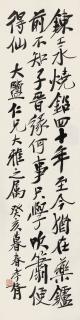 鍊汞燒鉛四十年至今猶在藥鑪
前不知子晉緣何事只學吹簫便
得仙 仁兄大雅之屬 癸亥暮春孝胥